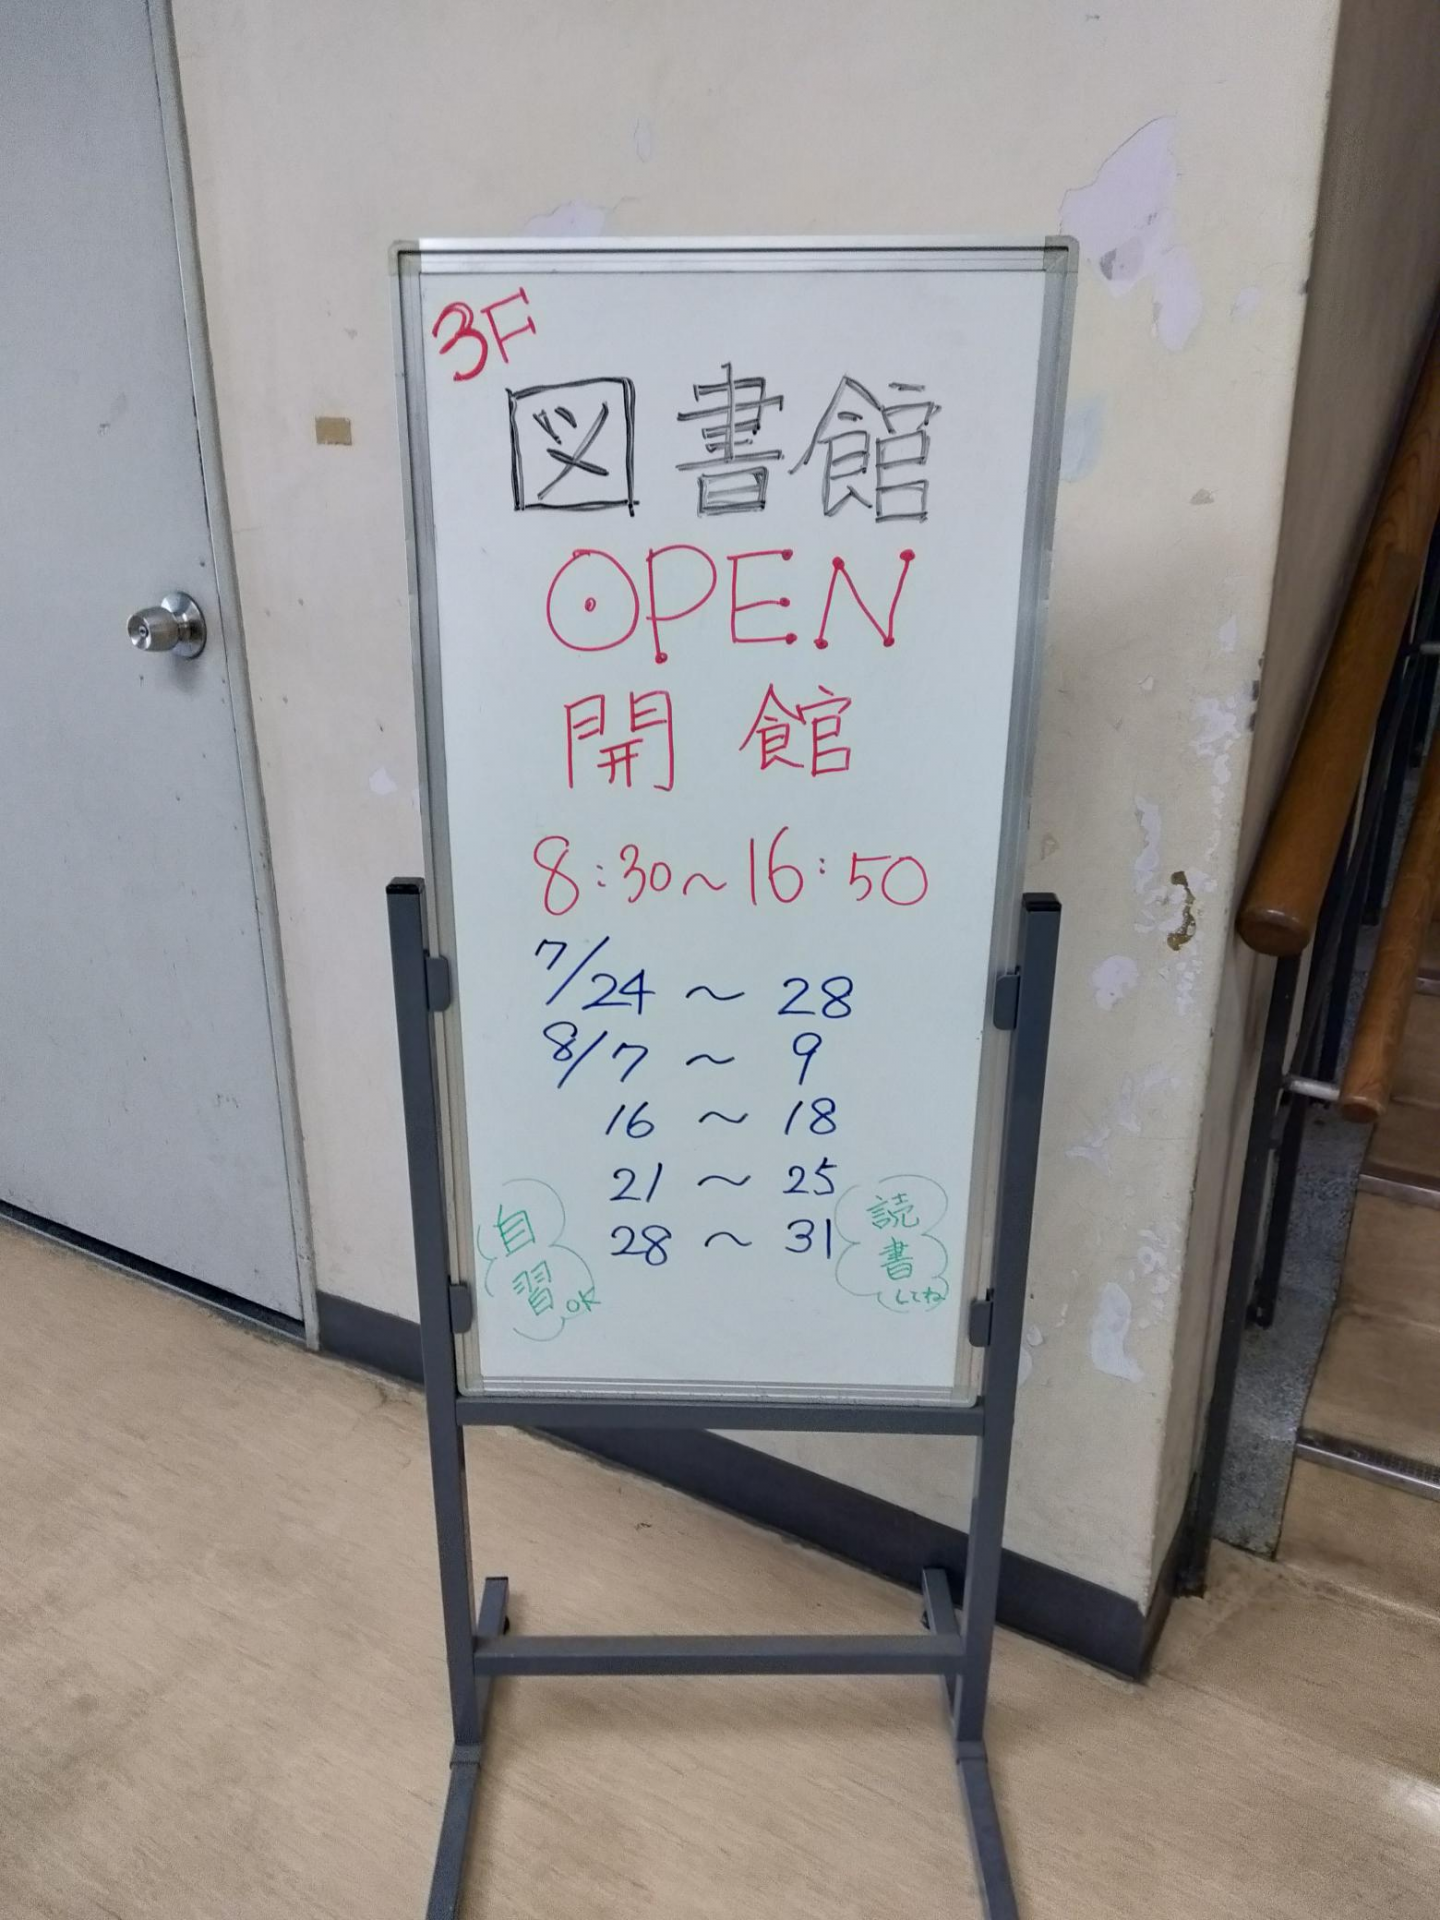 3F
図書館
OPEN
開館
8:30~16:50
7/24 ~ 28
8/7 ~ 9
16 ~ 18
21 ~ 25
28 ~ 31
自
習OK
読
書
してね